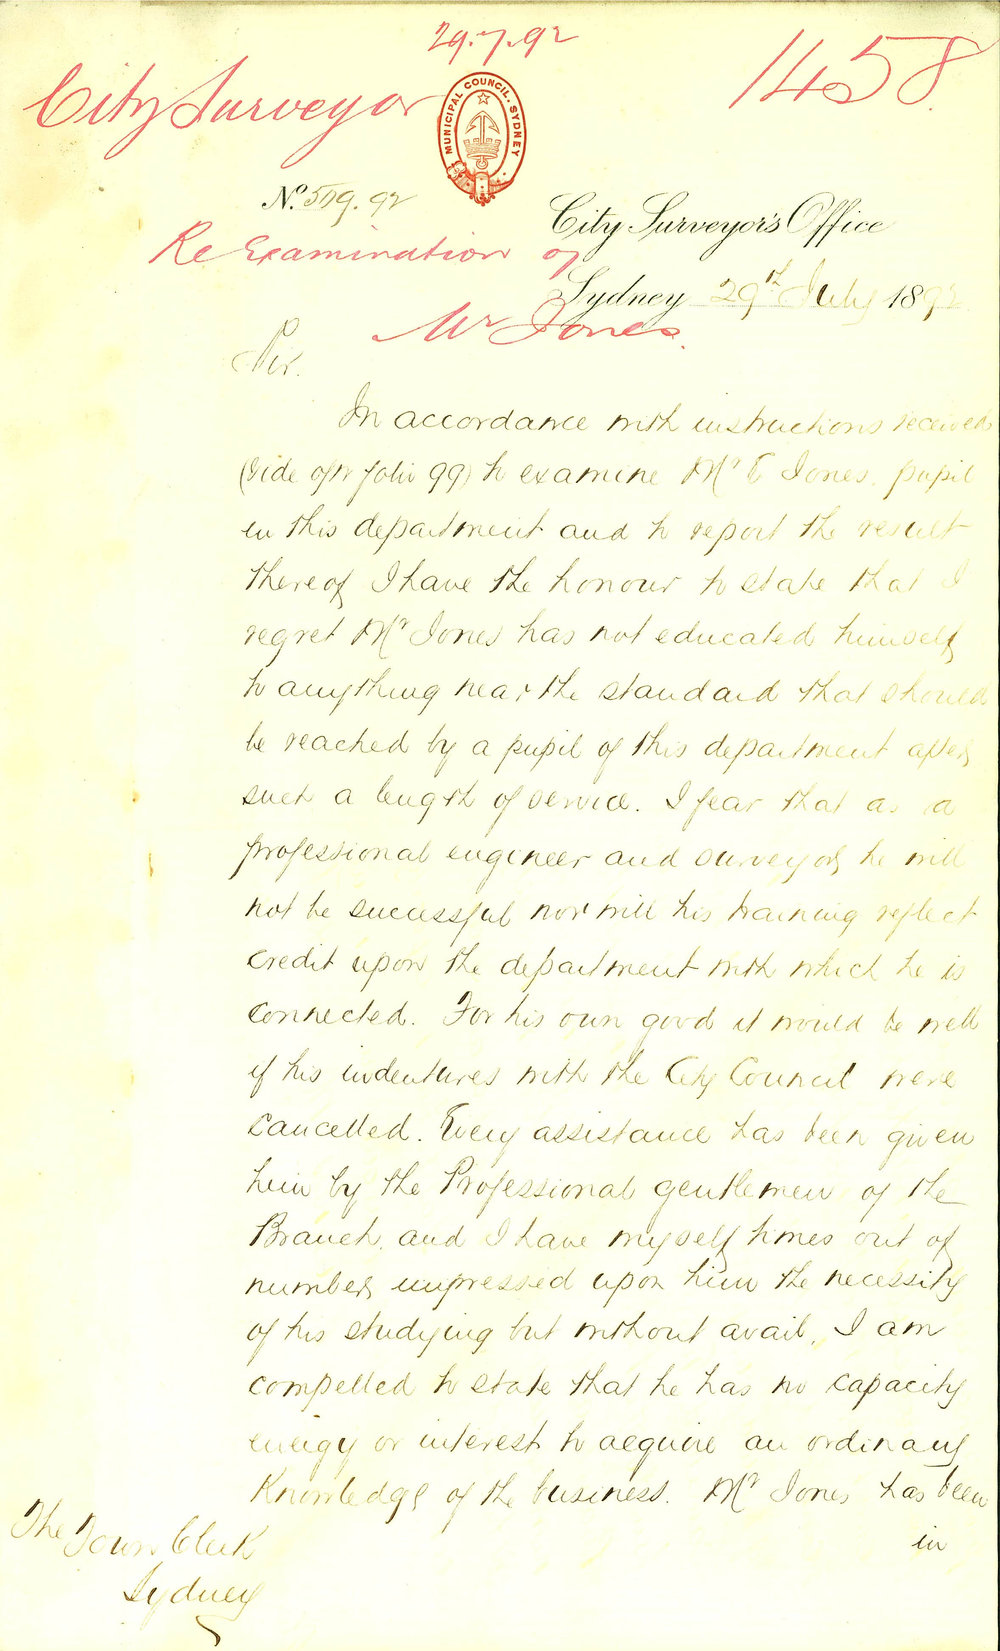 29.7.92
1458
City Surveyor
MUNICIPAL COUNCIL. SYDNEY
No. 579.92
City Surveyor's Office
Re Examination of
Sydney 29th July 1892
Mr Jones.
Sir.
In accordance with instructions received
(Vide folio 99) to examine Mr E Jones, pupil
in this department and to report the result
thereof I have the honour to state that I
regret Mr Jones has not educated himself
to anything near the standard that should
be reached by a pupil of this department after
such a length of service. I fear that as a
professional engineer and surveyor he will
not be successful nor will his training reflect
credit upon the department with which he is
connected. For his own good it would be well
if his indentures with the City Council were
cancelled. Every assistance has been given
him by the Professional gentlemen of the
Branch, and I have myself times out of
number impressed upon him the necessity
of his studying but without avail. I am
compelled to state that he has no capacity
energy or interest to acquire an ordinary
knowledge of the business. Mr Jones has been
in
The Town Clerk
Sydney